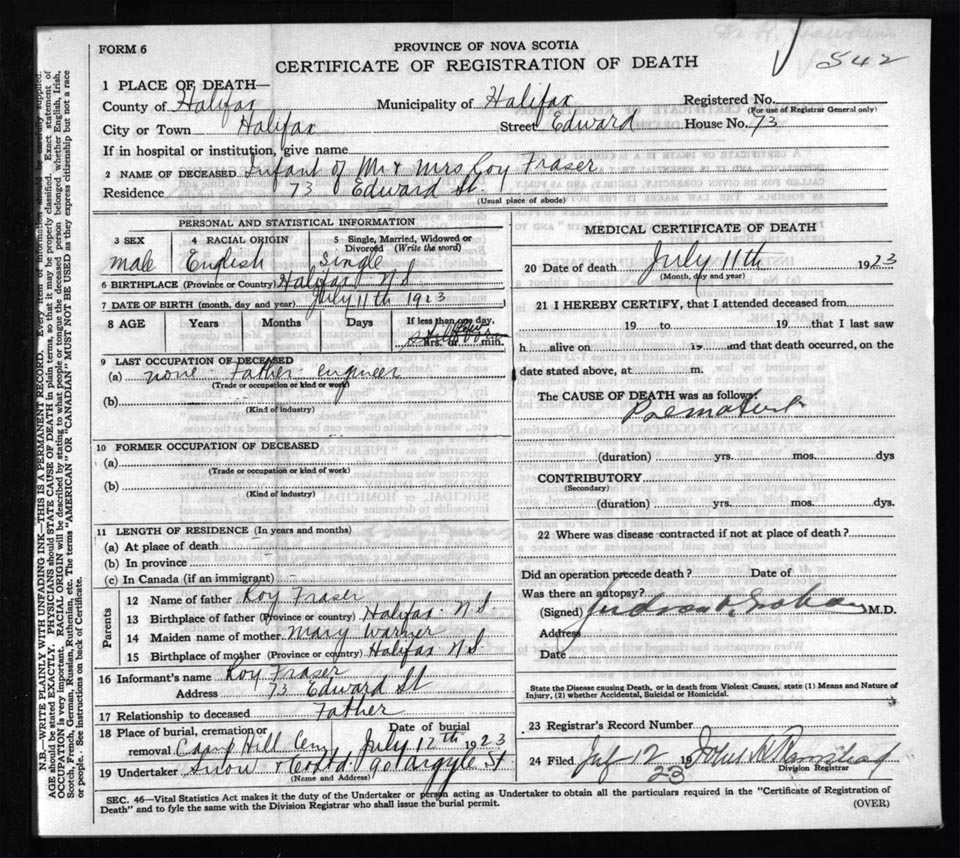 542
FORM 6
PROVINCE OF NOVA SCOTIA
CERTIFICATE OF REGISTRATION OF DEATH
1 PLACE OF DEATH—
County of Halifax Municipality of Halifax Registered No.
(For use of Registrar General only)
City or Town Halifax Street Edward House No. 73
If in hospital or institution, give name
2 NAME OF DECEASED Infant of Mr & Mrs Roy Fraser
Residence 73 Edward St.
(Usual place of abode)
PERSONAL AND STATISTICAL INFORMATION
3 SEX 4 RACIAL ORIGIN 5 Single, Married, Widowed or Divorced (Write the word)
male English Single
6 BIRTHPLACE (Province or Country) Halifax N S
7 DATE OF BIRTH (month, day and year) July 11th 1923
8 AGE Years Months Days If less than one day,
hrs. min.
9 LAST OCCUPATION OF DECEASED
(a) none - Father - engineer
(Trade or occupation or kind or work)
(b)
(Kind of industry)
10 FORMER OCCUPATION OF DECEASED
(a)
(Trade or occupation or kind of work)
(b)
(Kind of industry)
11 LENGTH OF RESIDENCE (In years and months)
(a) At place of death
(b) In province
(c) In Canada (if an immigrant)
Parents
12 Name of father Roy Fraser
13 Birthplace of father (Province or country) Halifax N S
14 Maiden name of mother Mary Warner
15 Birthplace of mother (Province or country) Halifax N S
16 Informant's name Roy Fraser
Address 73 Edward St
17 Relationship to deceased Father
18 Place of burial, cremation or removal Camp Hill Cem Date of burial July 12th 1923
19 Undertaker Snow & Co Ltd. 90 Argyle St
(Name and Address)
MEDICAL CERTIFICATE OF DEATH
20 Date of death July 11th 1923
(Month, day and year)
21 I HEREBY CERTIFY, that I attended deceased from
19 to 19 that I last saw
h alive on 19 and that death occurred, on the
date stated above, at m.
The CAUSE OF DEATH was as follows:
Premature
(duration) yrs. mos. dys
CONTRIBUTORY
(Secondary)
(duration) yrs. mos. dys.
22 Where was disease contracted if not at place of death?
Did an operation precede death? Date of
Was there an autopsy?
(Signed) M.D.
Address
Date
State the Disease causing Death, or in death from Violent Causes, state (1) Means and Nature of
Injury, (2) whether Accidental, Suicidal or Homicidal.
23 Registrar's Record Number
24 Filed July 12 1923
Division Registrar
SEC. 46—Vital Statistics Act makes it the duty of the Undertaker or person acting as Undertaker to obtain all the particulars required in the "Certificate of Registration of
Death" and to fyle the same with the Division Registrar who shall issue the burial permit.
(OVER)
N.B.—WRITE PLAINLY WITH UNFADING INK—THIS IS A PERMANENT RECORD. Every item of information should be carefully supplied.
AGE should be stated EXACTLY. PHYSICIANS should STATE CAUSE OF DEATH in plain terms, so that it may be properly classified. Exact statement of
OCCUPATION is very important. RACIAL ORIGIN will be described by stating to what people or tongue the deceased person belonged whether English, Irish,
Scotch, French, German, Russian, Ruthenian, etc. The terms "AMERICAN" OR "CANADIAN" MUST NOT BE USED as they express citizenship but not a race
or people. See instructions on back of Certificate.